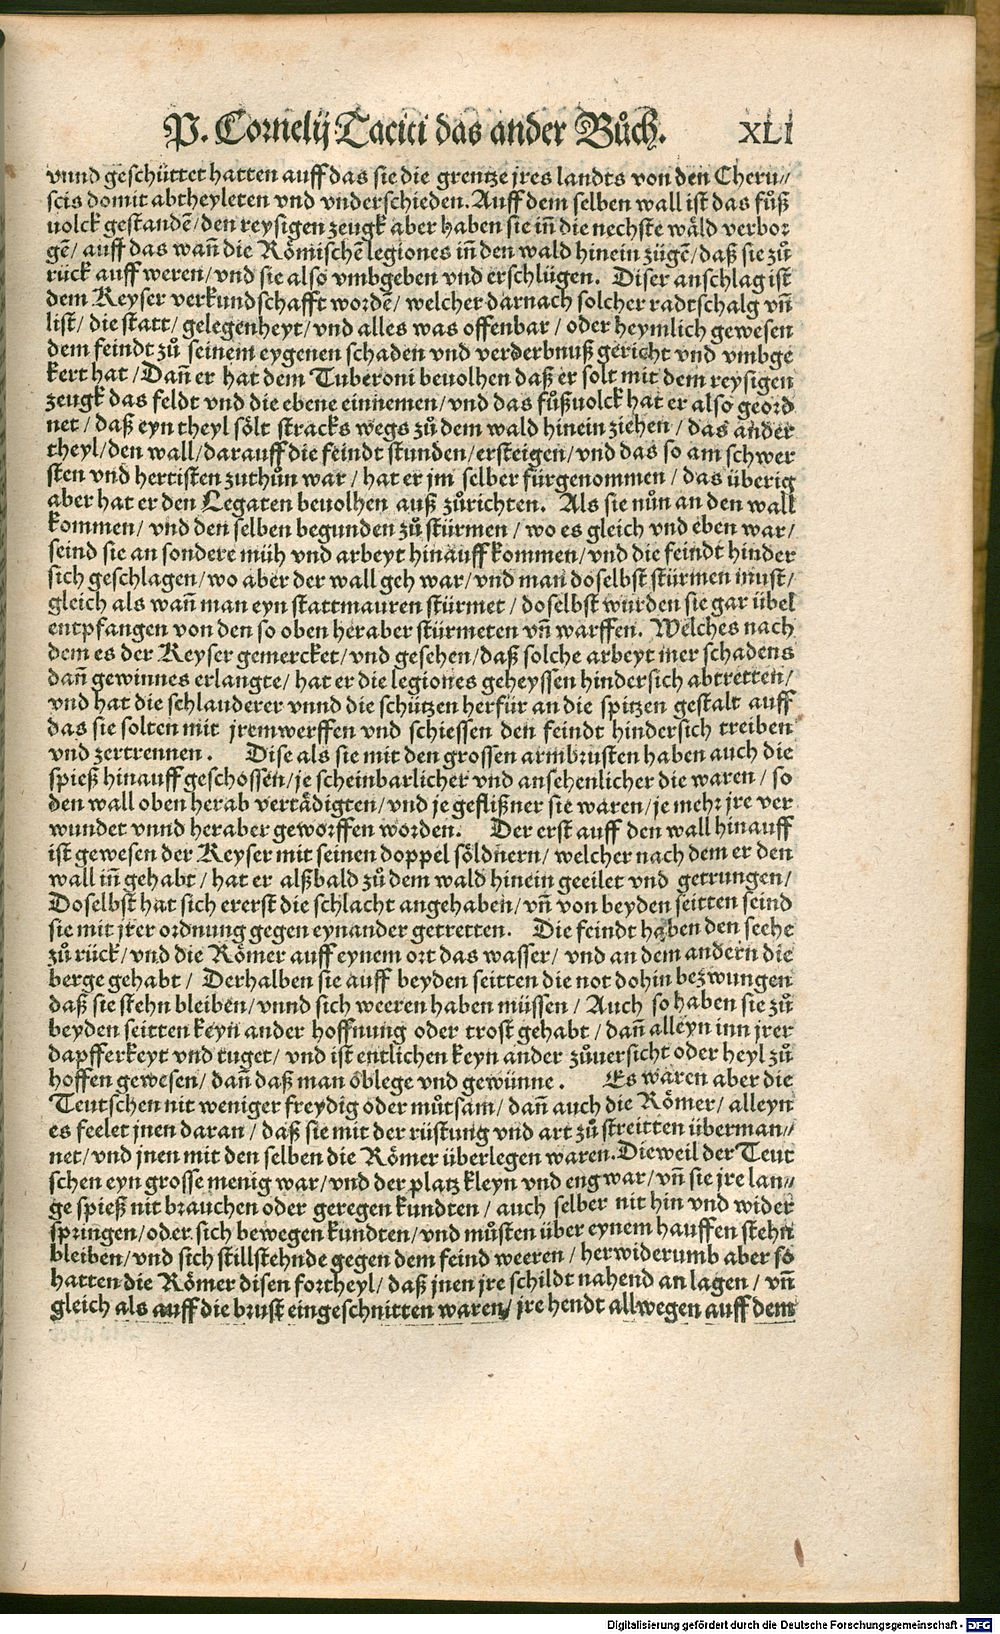 P. Cornelij Taciti das ander Bůch. XLI
vnnd geschüttet hatten auff das sie die grentze jres landts von den Cheru⸗
scis domit abtheyleten vnd vnderschieden. Auff dem selben wall ist das fůß
uolck gestandē/ den reysigen zeugk aber haben sie iñ die nechste wäld verbor
gē/ auff das wañ die Römischē legiones iñ den wald hinein zügē/ daß sie zů
rück auff weren/ vnd sie also vmbgeben vnd erschlügen. Diser anschlag ist
dem Keyser verkundschafft wordē/ welcher darnach solcher radtschalg vñ
list/ die statt/ gelegenheyt/ vnd alles was offenbar/ oder heymlich gewesen
dem feindt zů seinem eygenen schaden vnd verderbnuß gericht vnd vmbge
kert hat/ Dañ er hat dem Tuberoni beuolhen daß er solt mit dem reysigen
zeugk das feldt vnd die ebene einnemen/ vnd das fůßuolck hat er also geord
net/ daß eyn theyl sölt stracks wegs zů dem wald hinein ziehen/ das ander
theyl/ den wall/ darauff die feindt stunden/ ersteigen/ vnd das so am schwer
sten vnd hertisten zuthůn war/ hat er jm selber fürgenommen/ das überig
aber hat er den Legaten beuolhen auß zůrichten. Als sie nůn an den wall
kommen/ vnd den selben begunden zů stürmen/ wo es gleich vnd eben war/
seind sie an sondere müh vnd arbeyt hinauff kommen/ vnd die feindt hinder
sich geschlagen/ wo aber der wall geh war/ vnd man doselbst stürmen must/
gleich als wañ man eyn stattmauren stürmet/ doselbst wurden sie gar übel
entpfangen von den so oben heraber stürmeten vñ warffen. Welches nach
dem es der Keyser gemercket/ vnd gesehen/ daß solche arbeyt mer schadens
dañ gewinnes erlangte/ hat er die legiones geheyssen hindersich abtretten/
vnd hat die schlauderer vnnd die schützen herfür an die spitzen gestalt auff
das sie solten mit jrem werffen vnd schiessen den feindt hindersich treiben
vnd zertrennen. Dise als sie mit den grossen armbrusten haben auch die
spieß hinauff geschossen/ je scheinbarlicher vnd ansehenlicher die waren/ so
den wall oben herab vertädigten/ vnd je geflißner sie waren/ je mehr jre ver
wundet vnnd heraber geworffen worden. Der erst auff den wall hinauff
ist gewesen der Keyser mit seinen doppel söldnern/ welcher nach dem er den
wall iñ gehabt/ hat er alßbald zů dem wald hinein geeilet vnd getrungen/
Doselbst hat sich ererst die schlacht angehaben/ vñ von beyden seitten seind
sie mit jrer ordnung gegen eynander getretten. Die feindt haben den seehe
zů rück/ vnd die Römer auff eynem ort das wasser/ vnd an dem andern die
berge gehabt/ Derhalben sie auff beyden seitten die not dohin bezwungen
daß sie stehn bleiben/ vnnd sich weeren haben müssen/ Auch so haben sie zů
beyden seitten keyn ander hoffnung oder trost gehabt/ dañ alleyn inn jrer
dapfferkeyt vnd tuget/ vnd ist entlichen keyn ander zůuersicht oder heyl zů
hoffen gewesen/ dañ daß man oblege vnd gewünne. Es waren aber die
Teutschen nit weniger freydig oder můtsam/ dañ auch die Römer/ alleyn
es feelet jnen daran/ daß sie mit der rüstung vnd art zů streitten überman⸗
net/ vnd jnen mit den selben die Römer überlegen waren. Dieweil der Teut
schen eyn grosse menig war/ vnd der platz kleyn vnd eng war/ vñ sie jre lan⸗
ge spieß nit brauchen oder geregen kundten/ auch selber nit hin vnd wider
springen/ oder sich bewegen kundten/ vnd můsten über eynem hauffen stehn
bleiben/ vnd sich stillstehnde gegen dem feind weeren/ herwiderumb aber so
hatten die Römer disen fortheyl/ daß jnen jre schildt nahend an lagen/ vñ
gleich als auff die brust eingeschnitten waren/ jre hendt allwegen auff dem
Digitalisierung gefördert durch die Deutsche Forschungsgemeinschaft - DFG